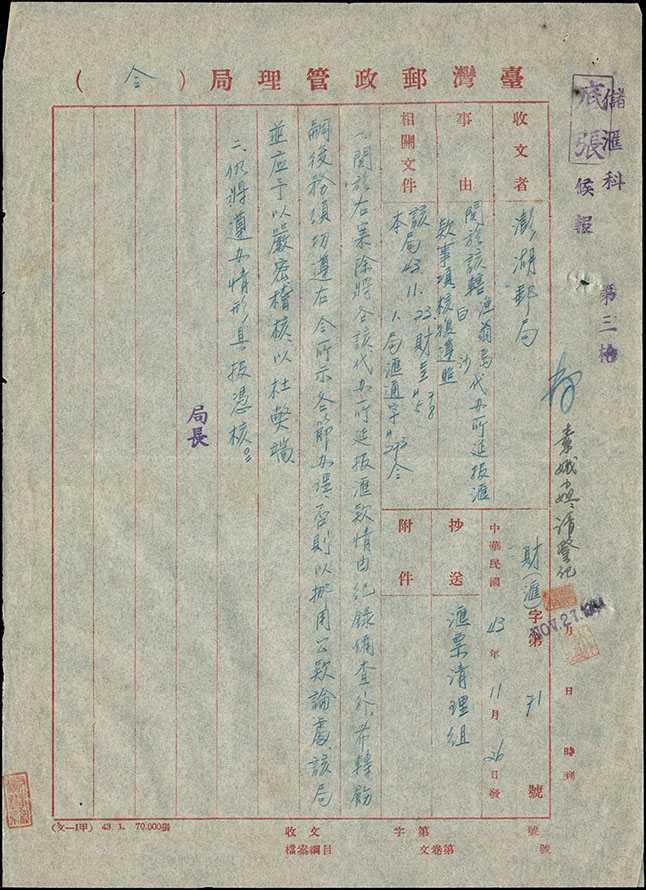 臺灣郵政管理局（令）
儲匯科
底張
候證
第三格
袁娥小姐請登記
月日時到
NOV.27.1954
收文者
澎湖郵局
事由
關於該轄漁翁島白沙代办所延报匯
款事項核復遵照
相關文件
該局43.11.23財呈
本局匯通字令
財(匯)字第71號
中華民國43年11月26日發
抄送
匯票清理組
附件
一、關於右案除將令該代办所延报匯款情由纪錄備查外，希轉飭
嗣後務須切遵右令所示各節办理，否則以挪用公欵論處，該局
並应予以嚴密稽核，以杜弊端。
二、仍將遵办情形具报憑核。
局長
(文—1甲) 43. 1. 70.000張
收文字第號
檔案綱目文卷第號